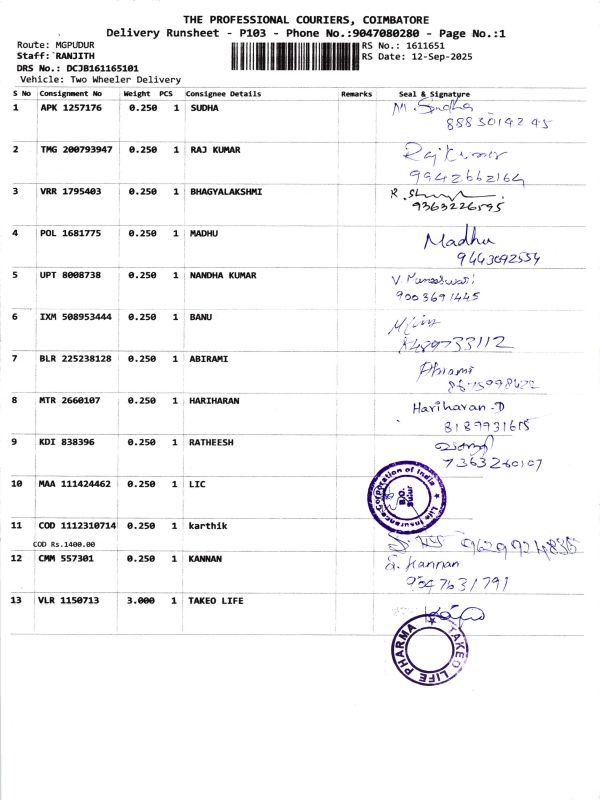 THE PROFESSIONAL COURIERS, COIMBATORE
Delivery Runsheet - P103 - Phone No.:9047080280 - Page No.:1
Route: MGPUDUR RS No.: 1611651
Staff: RANJITH RS Date: 12-Sep-2025
DRS No.: DCJB161165101
Vehicle: Two Wheeler Delivery
S No Consignment No Weight PCS Consignee Details Remarks Seal & Signature
1 APK 1257176 0.250 1 SUDHA M. Sudha
8883014245
2 TMG 200793947 0.250 1 RAJ KUMAR Raj Kumar
9942662164
3 VRR 1795403 0.250 1 BHAGYALAKSHMI
9363226595
4 POL 1681775 0.250 1 MADHU Madhu
9443092554
5 UPT 8008738 0.250 1 NANDHA KUMAR V. Muneeswari
9003691445
6 IXM 508953444 0.250 1 BANU
8489733112
7 BLR 225238128 0.250 1 ABIRAMI Abirami
8 MTR 2660107 0.250 1 HARIHARAN Hariharan.D
8189931615
9 KDI 838396 0.250 1 RATHEESH
7363260107
10 MAA 111424462 0.250 1 LIC Life Insurance Corporation of India
11 COD 1112310714 0.250 1 karthik
COD Rs.1400.00
12 CMM 557301 0.250 1 KANNAN S. Kannan
9047631791
13 VLR 1150713 3.000 1 TAKEO LIFE
TAKEO LIFE PHARMA